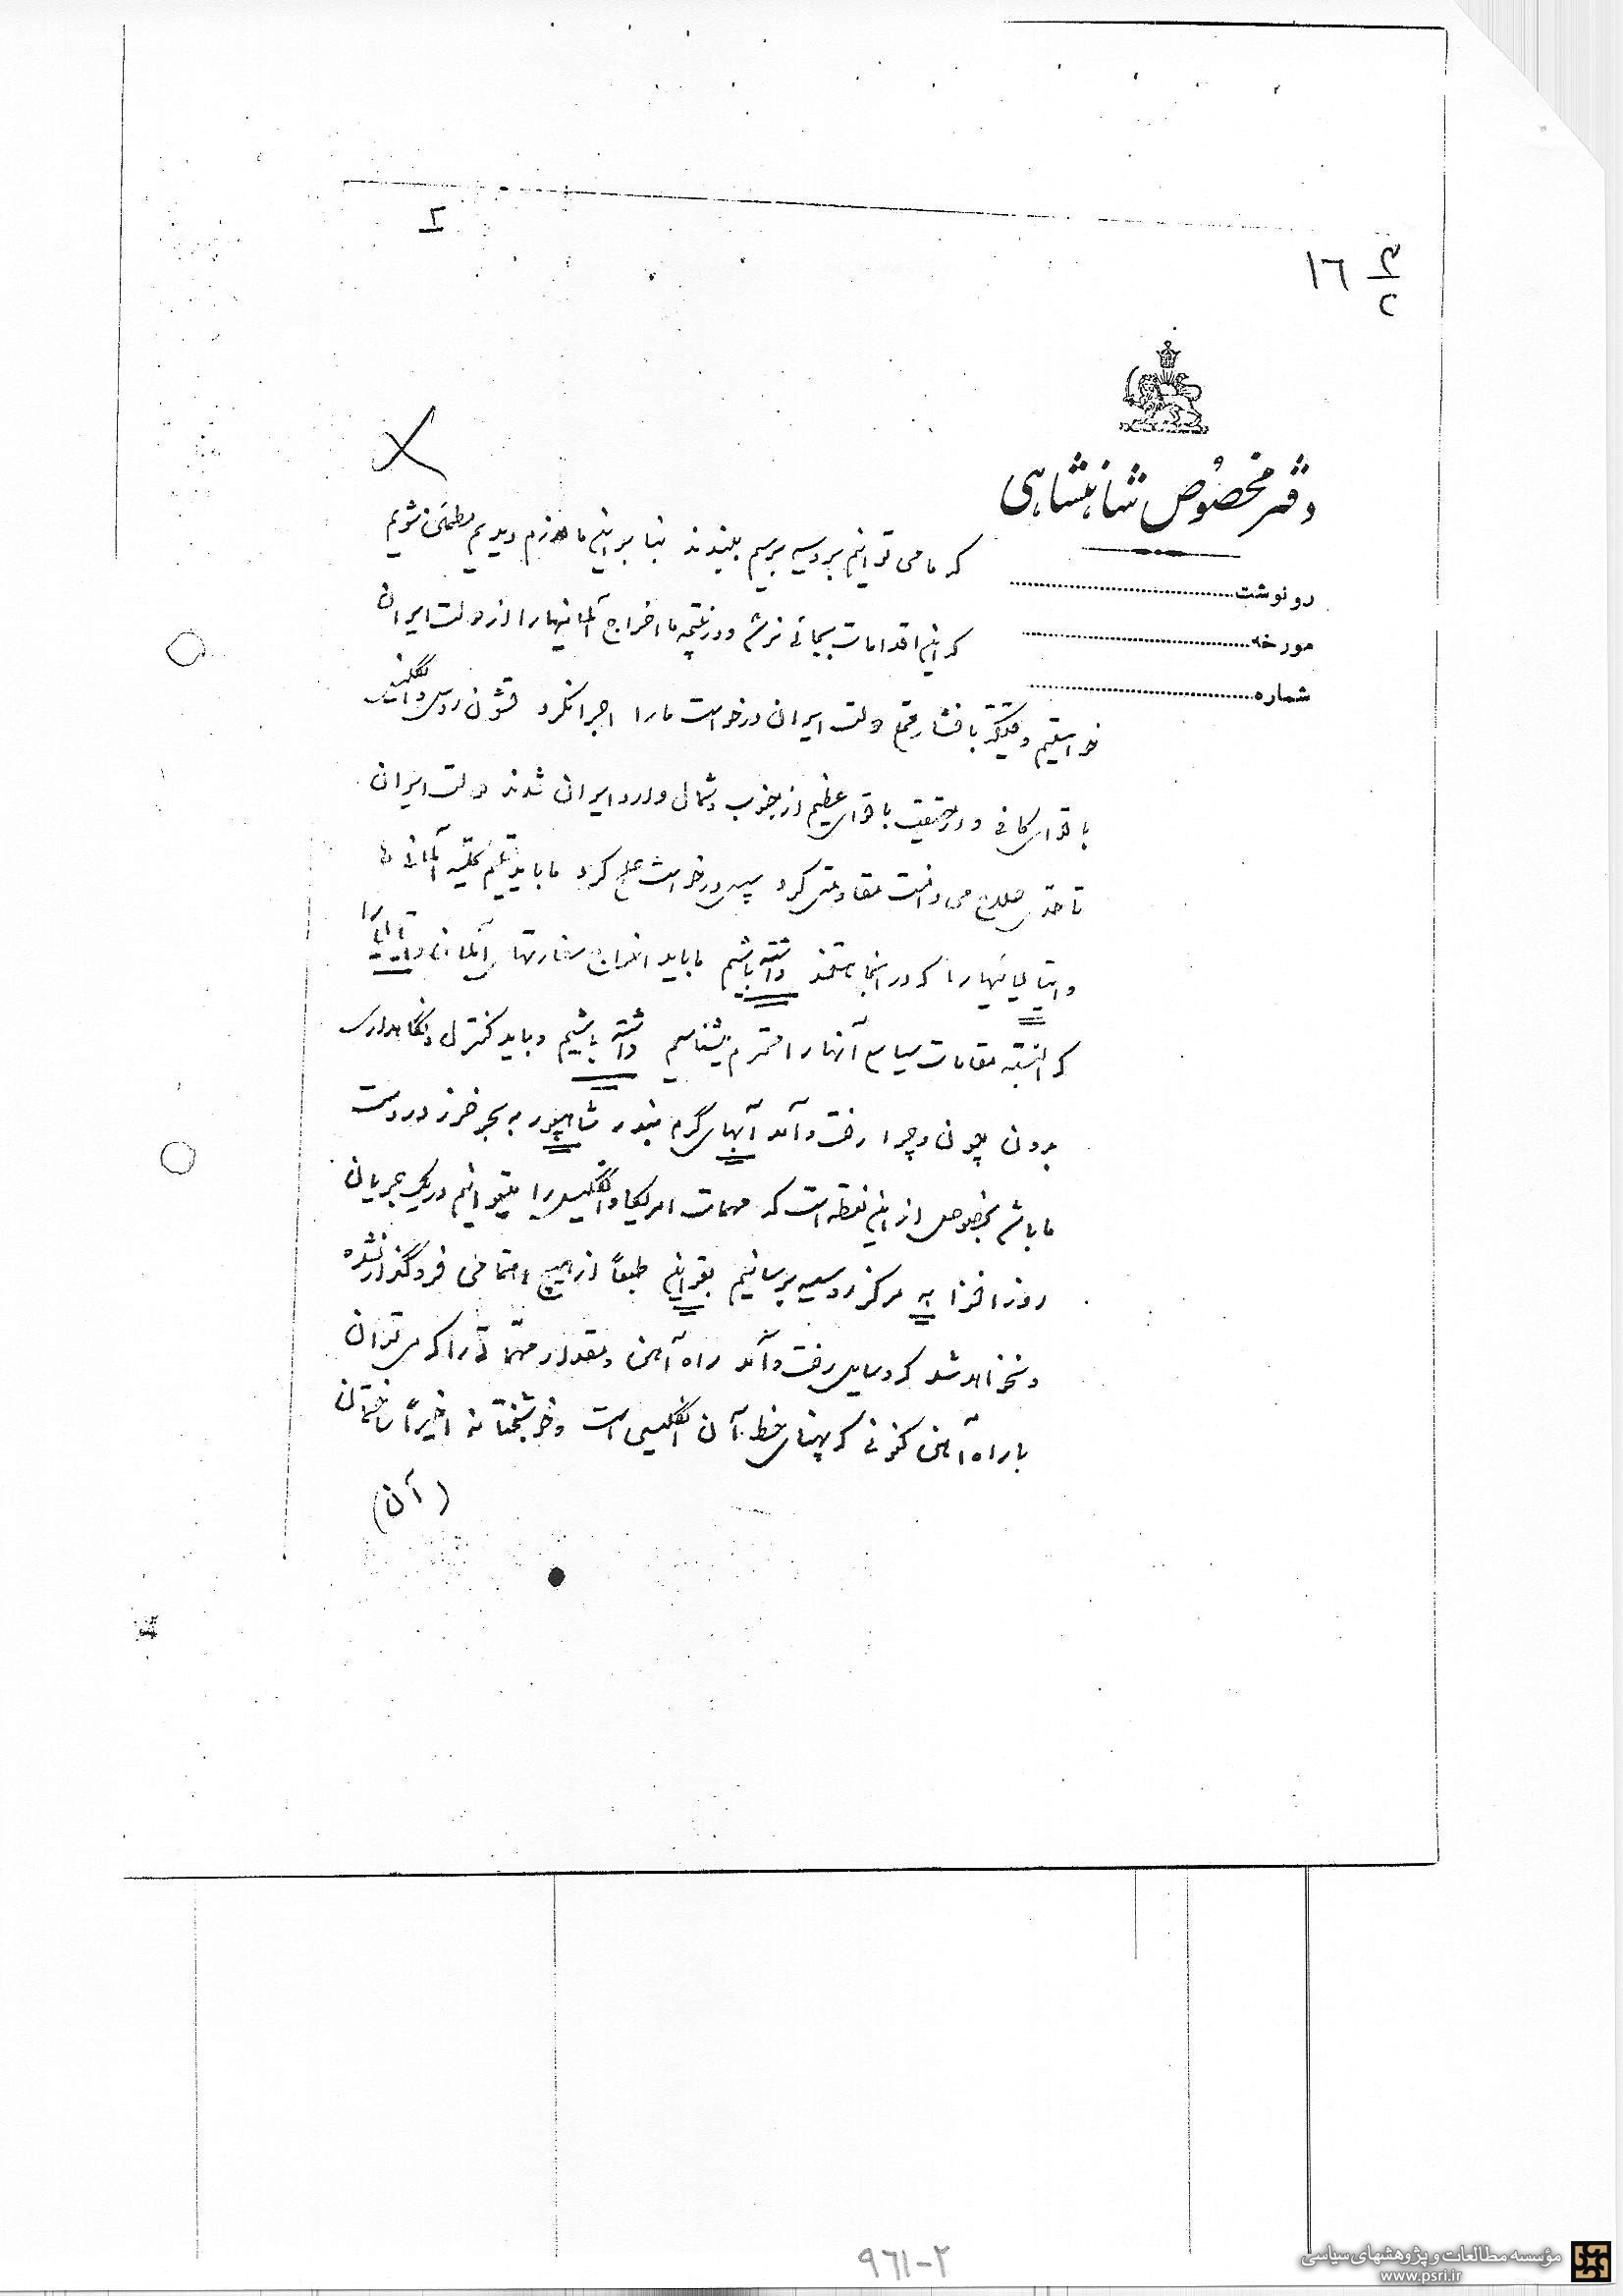 ۲
۱۶ ۳/۲
دفتر مخصوص شاهنشاهی
رونوشت
مورخه
شماره
که ما می توانیم بروسیه برسیم بلیندند بنا براین ما لازم دیدیم مطمئن شویم
که این اقدامات بجائی نرسد و در نتیجه ما اخراج آلمانیها را از دولت ایران
خواستیم وقتیکه با فشار دولت ایران درخواست ما را اجرا نکرد قشون روس و انگلیس
با قوای کافی و در حقیقت با قوای عظیم از جنوب و شمال وارد ایران شدند دولت ایران
تا حدی صلاح می دانست مقاومتی کرد سپس درخواست صلح کرد ما باید تسلیم کلیه آلمانی ها
و ایتالیائیها را که در آنجا هستند داشته باشیم ما باید اخراج سفارتهای آلمان و ایتالیا را
که البته مقامات سیاسی آنها را محترم میشناسیم داشته باشیم و باید کنترل و نگاهداری
بدون چون و چرا رفت و آمد آبهای گرم بندر شاهپور به بحر خزر در دست
ما باشد بخصوص از این نقطه است که مهمات امریکا و انگلیس را میتوانیم در یک جریان
روز افزا به مرکز روسیه برسانیم بقراین طبعاً از هیچ اهتمامی فروگذار نشده
و نخواهد شد که وسایل رفت و آمد راه آهن و مقدار مهماتی را که می توان
با راه آهن کنونی که پهنای خط آن انگلیسی است و خوشبختانه اخیراً ساختمان
(آن)
۹۶۱-۲
مؤسسه مطالعات و پژوهشهای سیاسی
www.psri.ir